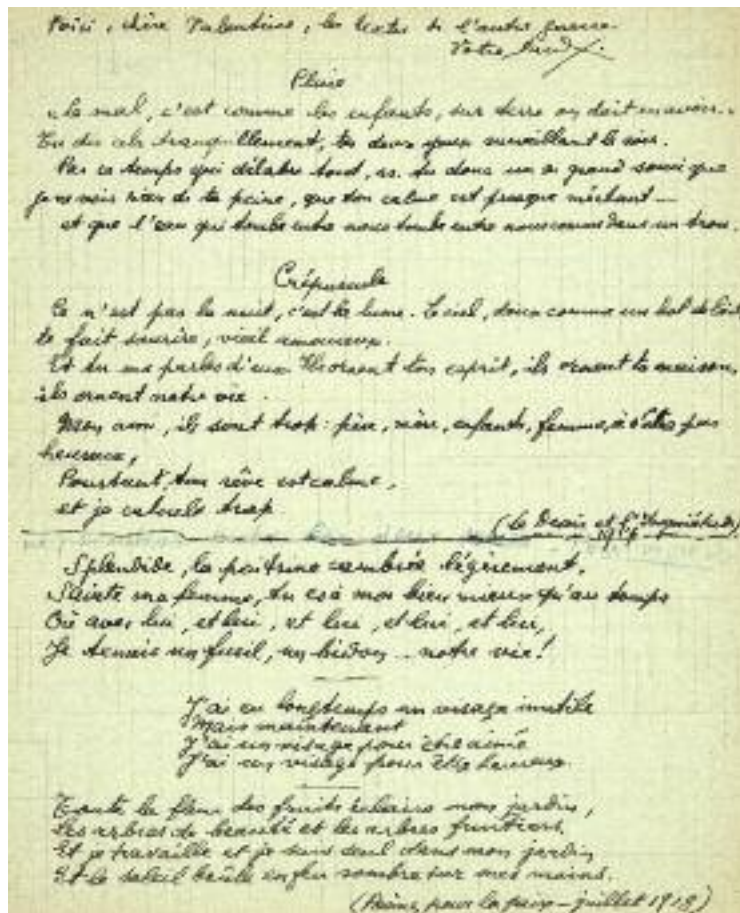 Voici, chère Valentine, les textes de l'autre guerre.
Votre
Pluie
"Le mal, c'est comme les enfants, sur terre on doit en avoir."
Tu dis cela tranquillement, tes deux yeux surveillant le soir.
Par ce temps qui délabre tout, as-tu donc un si grand souci que
je ne vois rien de ta peine, que ton calme est presque méchant...
et que l'eau qui tombe entre nous tombe entre nous comme dans un trou.
Crépuscule
Ce n'est pas la nuit, c'est la lune. Le ciel, doux comme un bol de lait,
te fait sourire, vieil amoureux.
Et tu me parles d'eux. Ils ornent ton esprit, ils ornent ta maison,
ils ornent notre vie.
Mon ami, ils sont trop : père, mère, enfants, femme, à n'être pas
heureux,
Pourtant, ton rêve est calme,
et je calcule trop.
(Le Devoir et l'Inquiétude)
Splendide, la poitrine cambrée légèrement,
Sainte ma femme, tu es à moi bien mieux qu'au temps
Où avec lui, et lui, et lui, et lui, et lui,
Je tenais un fusil, un bidon – notre vie !
J'ai eu longtemps un visage inutile
Mais maintenant
J'ai un visage pour être aimé
J'ai un visage pour être heureux.
Toute la fleur des fruits éclaire mon jardin,
Les arbres de beauté et les arbres fruitiers.
Et je travaille et je suis seul dans mon jardin
Et le soleil brûle en feu sombre sur mes mains.
(Poèmes pour la paix – juillet 1918)